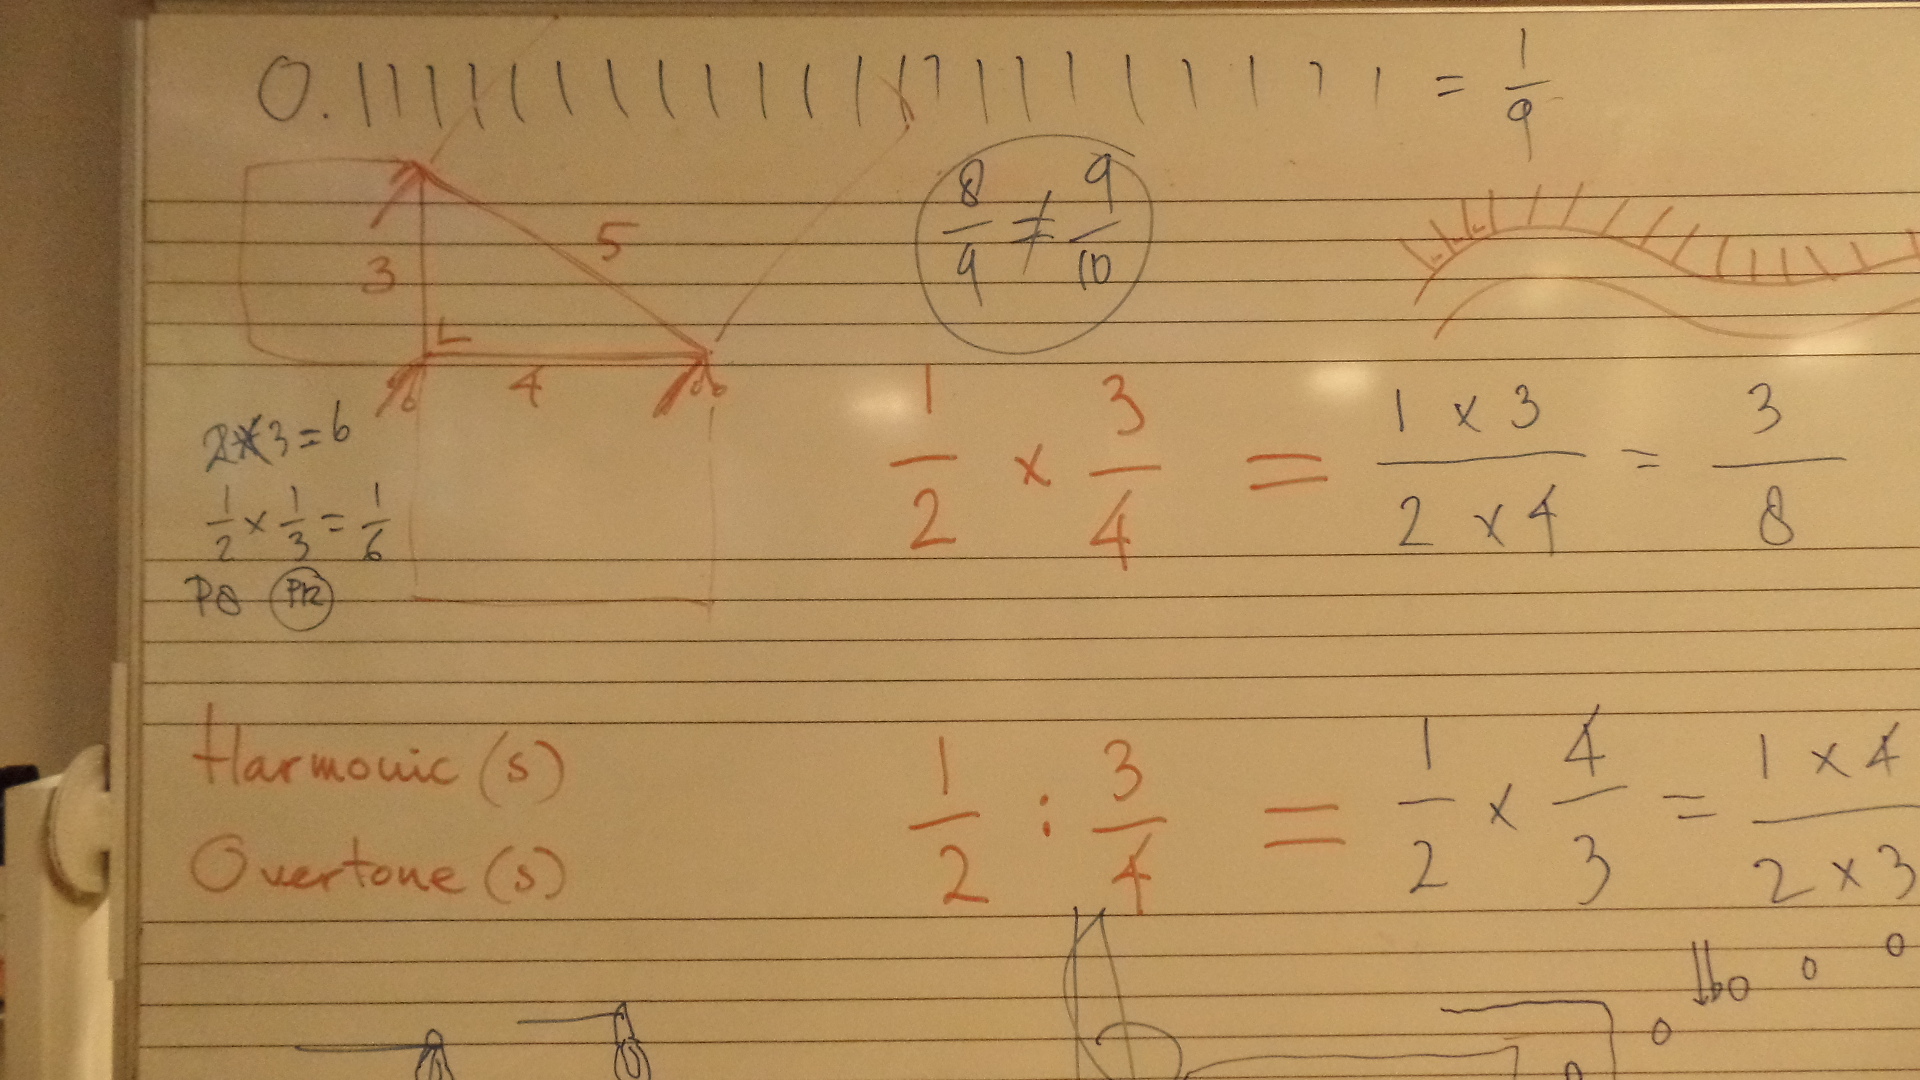 0.1111111111111111111111 = 1/9
5
3
4
8/9 ≠ 9/10
2 x 3 = 6
1/2 x 1/3 = 1/6
P8 P12
1/2 x 3/4 = 1 x 3 / 2 x 4 = 3/8
Harmonic (s)
Overtone (s)
1/2 : 3/4 = 1/2 x 4/3 = 1 x 4 / 2 x 3